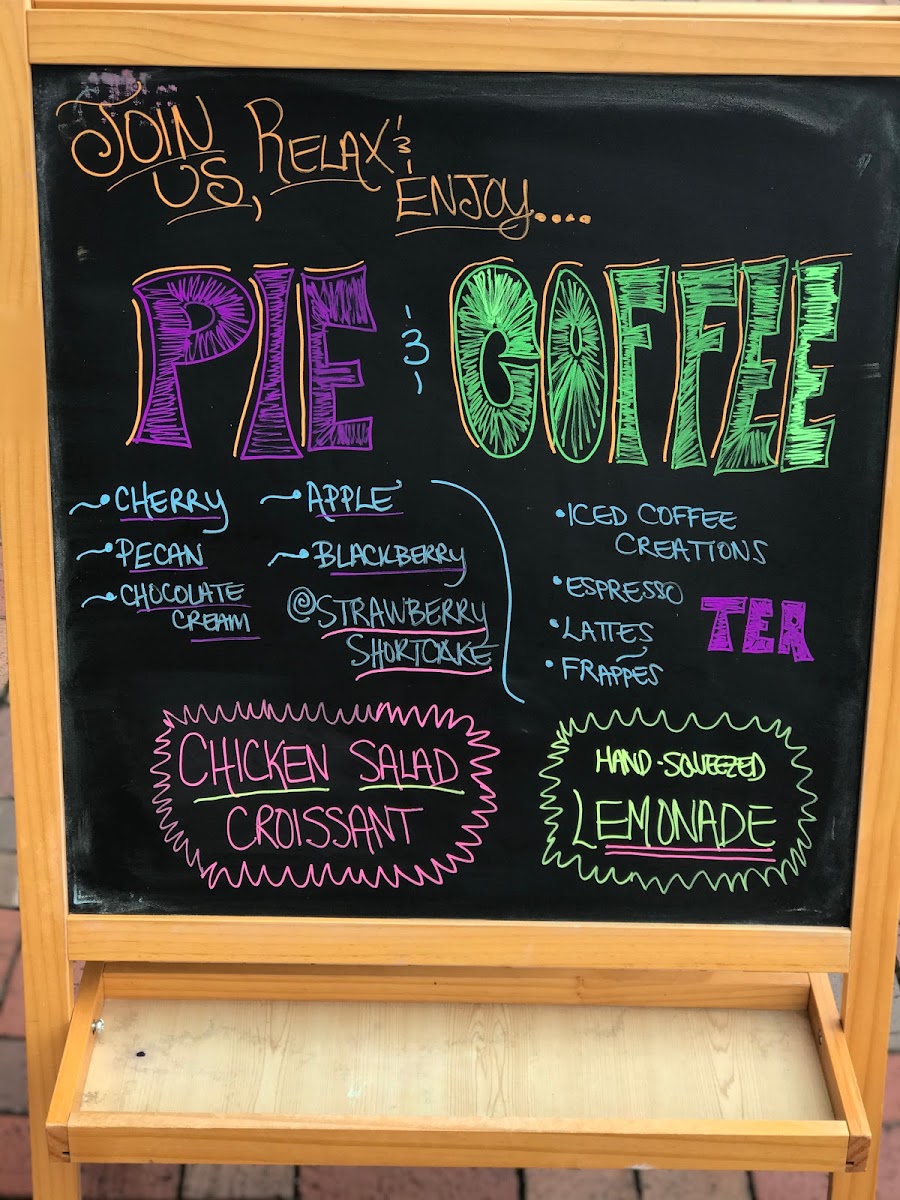 JOIN US, RELAX & ENJOY....
PIE & COFFEE
CHERRY
PECAN
CHOCOLATE
CREAM
APPLE
BLACKBERRY
@STRAWBERRY
SHORTCAKE
•ICED COFFEE
CREATIONS
•ESPRESSO
•LATTES
•FRAPPES
TEA
CHICKEN SALAD
CROISSANT
HAND-SQUEEZED
LEMONADE